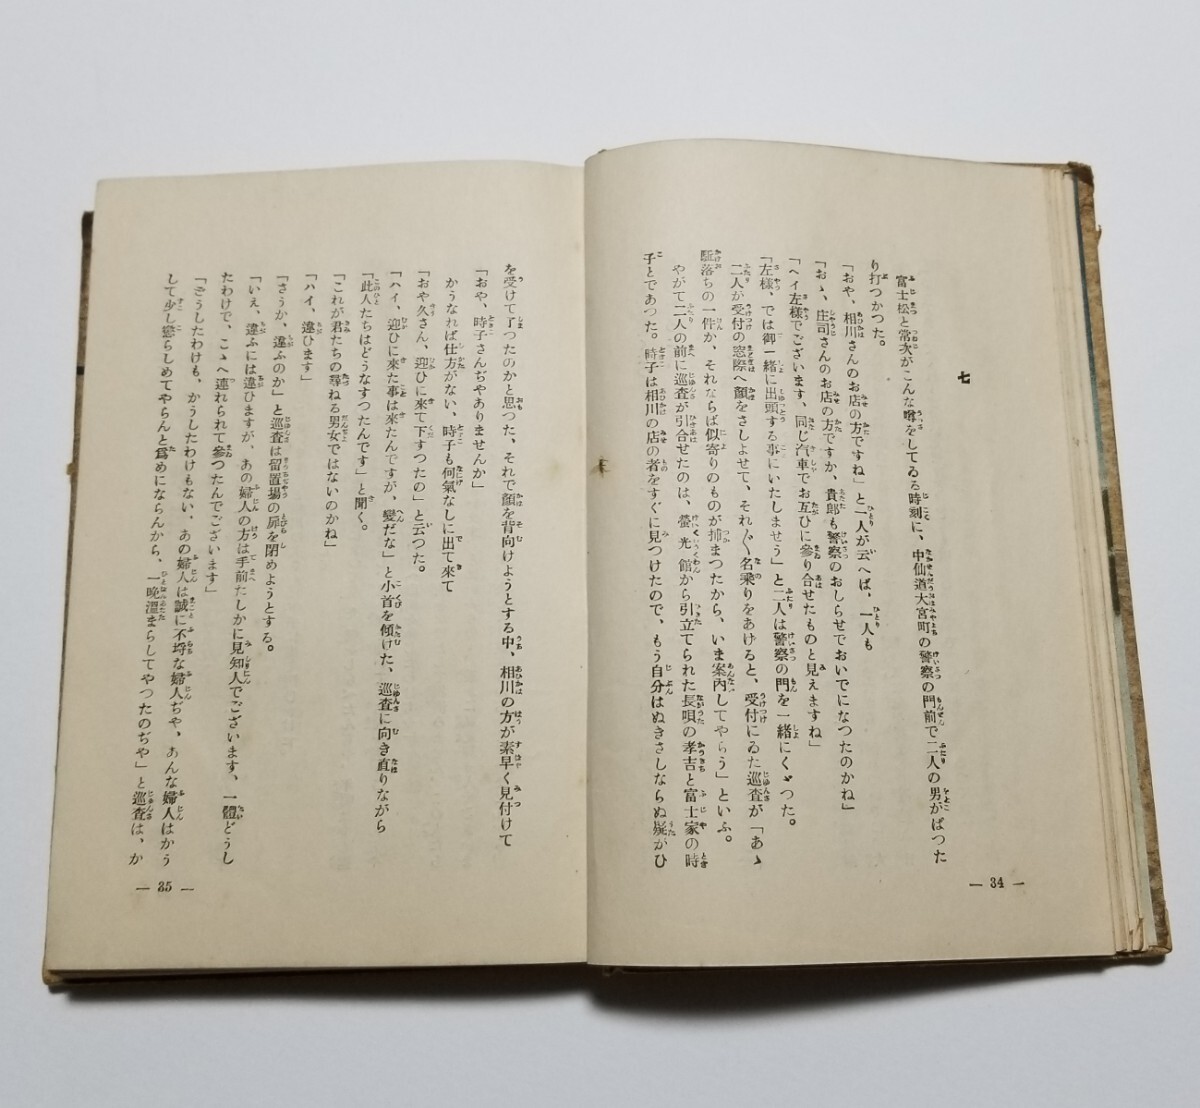 七
富士松と常次がこんな噂をしてる時刻に、中仙道大宮町の警察の門前で二人の男がばつた
り打つかつた。
「おや、相川さんのお店の方ですね」と一人が云へば、一人も
「おゝ、庄司さんのお店の方ですか、貴郎も警察のおしらせでおいでになつたのかね」
「ヘイ左様でございます、同じ汽車でお互ひに參り合せたものと見えますね」
「左様、では御一緒に出頭する事にいたしませう」と二人は警察の門を一緒にくゞつた。
二人が受付の窓際へ顔をさしよせて、それ〴〵名乗りをあけると、受付にゐた巡査が「あゝ
駈落ちの一件か、それならば似寄りのものが捕まつたから、いま案内してやらう」といふ。
やがて二人の前に巡査が引合せたのは、螢光館から引立てられた長唄の孝吉と富士家の時
子とであつた。時子は相川の店の者をすぐに見つけたので、もう自分はぬきさしならぬ疑がひ
— 34 —
を受けて了つたのかと思つた、それで顔を背向けようとする中、相川の方が素早く見付けて
「おや、時子さんぢやありませんか」
かうなれば仕方がない、時子も何氣なしに出て來て
「おや久さん、迎ひに來て下すつたの」と云つた。
「ハイ、迎ひに來た事は來たんですが、變だな」と小首を傾けた、巡査に向き直りながら
「此人たちはどうなすつたんです」と聞く。
「これが君たちの尋ねる男女ではないのかね」
「ハイ、違ひます」
「さうか、違ふのか」と巡査は留置場の扉を閉めようとする。
「いえ、違ふには違ひますが、あの婦人の方は手前たしかに見知人でございます、一體どうし
たわけで、こゝへ連れられて參つたんでございます」
「どうしたわけも、かうしたわけもない、あの婦人は誠に不埒な婦人ぢや、あんな婦人はかう
して少し懲らしめてやらんと爲めにならんから、一晩溫まらしてやつたのぢや」と巡査は、か
— 35 —